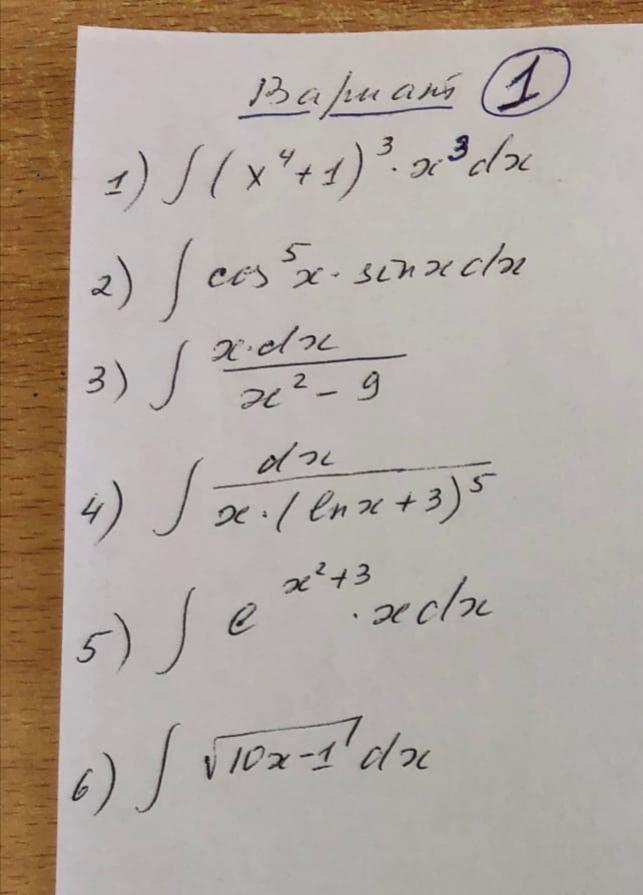 Вариант 1
1) ∫(x⁴+1)³·x³dx
2) ∫cos⁵x·sinxdx
3) ∫ x·dx / x²-9
4) ∫ dx / x·(lnx+3)⁵
5) ∫e^(x²+3)·xdx
6) ∫√(10x-1)dx